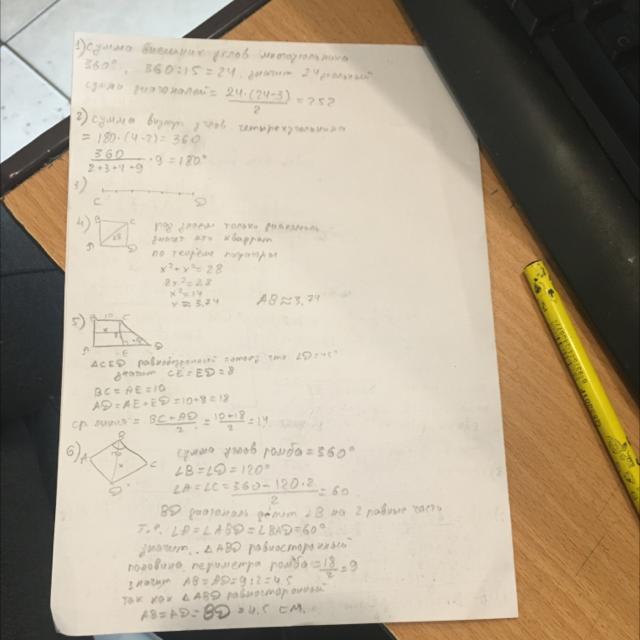 1) Сумма внешних углов многоугольника
360°, 360:15=24, значит 24 угольный
сумма диагоналей = 24·(24-3) / 2 = 252
2) Сумма внутр углов четырехугольника
= 180·(4-2)=360
360 / 2+3+4+9 · 9=180°
3)
C D
4) B C
A D
значит это квадрат
по теореме пифагора
x²+x²=28
2x²=28
x²=14
x≈3,74 AB≈3,74
5) B 10 C
A E D
△CED равнобедренный потому что ∠D=45°
значит CE=ED=8
BC=AE=10
AD=AE+ED=10+8=18
ср. линия = BC+AD / 2 = 10+18 / 2 = 14
6) B
A C
D
сумма углов ромба=360°
∠B=∠D=120°
∠A=∠C= 360-120·2 / 2 =60
BD диагональ делит ∠B на 2 равные часть
т.е. ∠D=∠ABD=∠BAD=60°
значит △ABD равносторонный
половина периметра ромба= 18 / 2 =9
значит AB=AD=9:2=4.5
так как △ABD равносторонный
AB=AD=BD=4.5 см